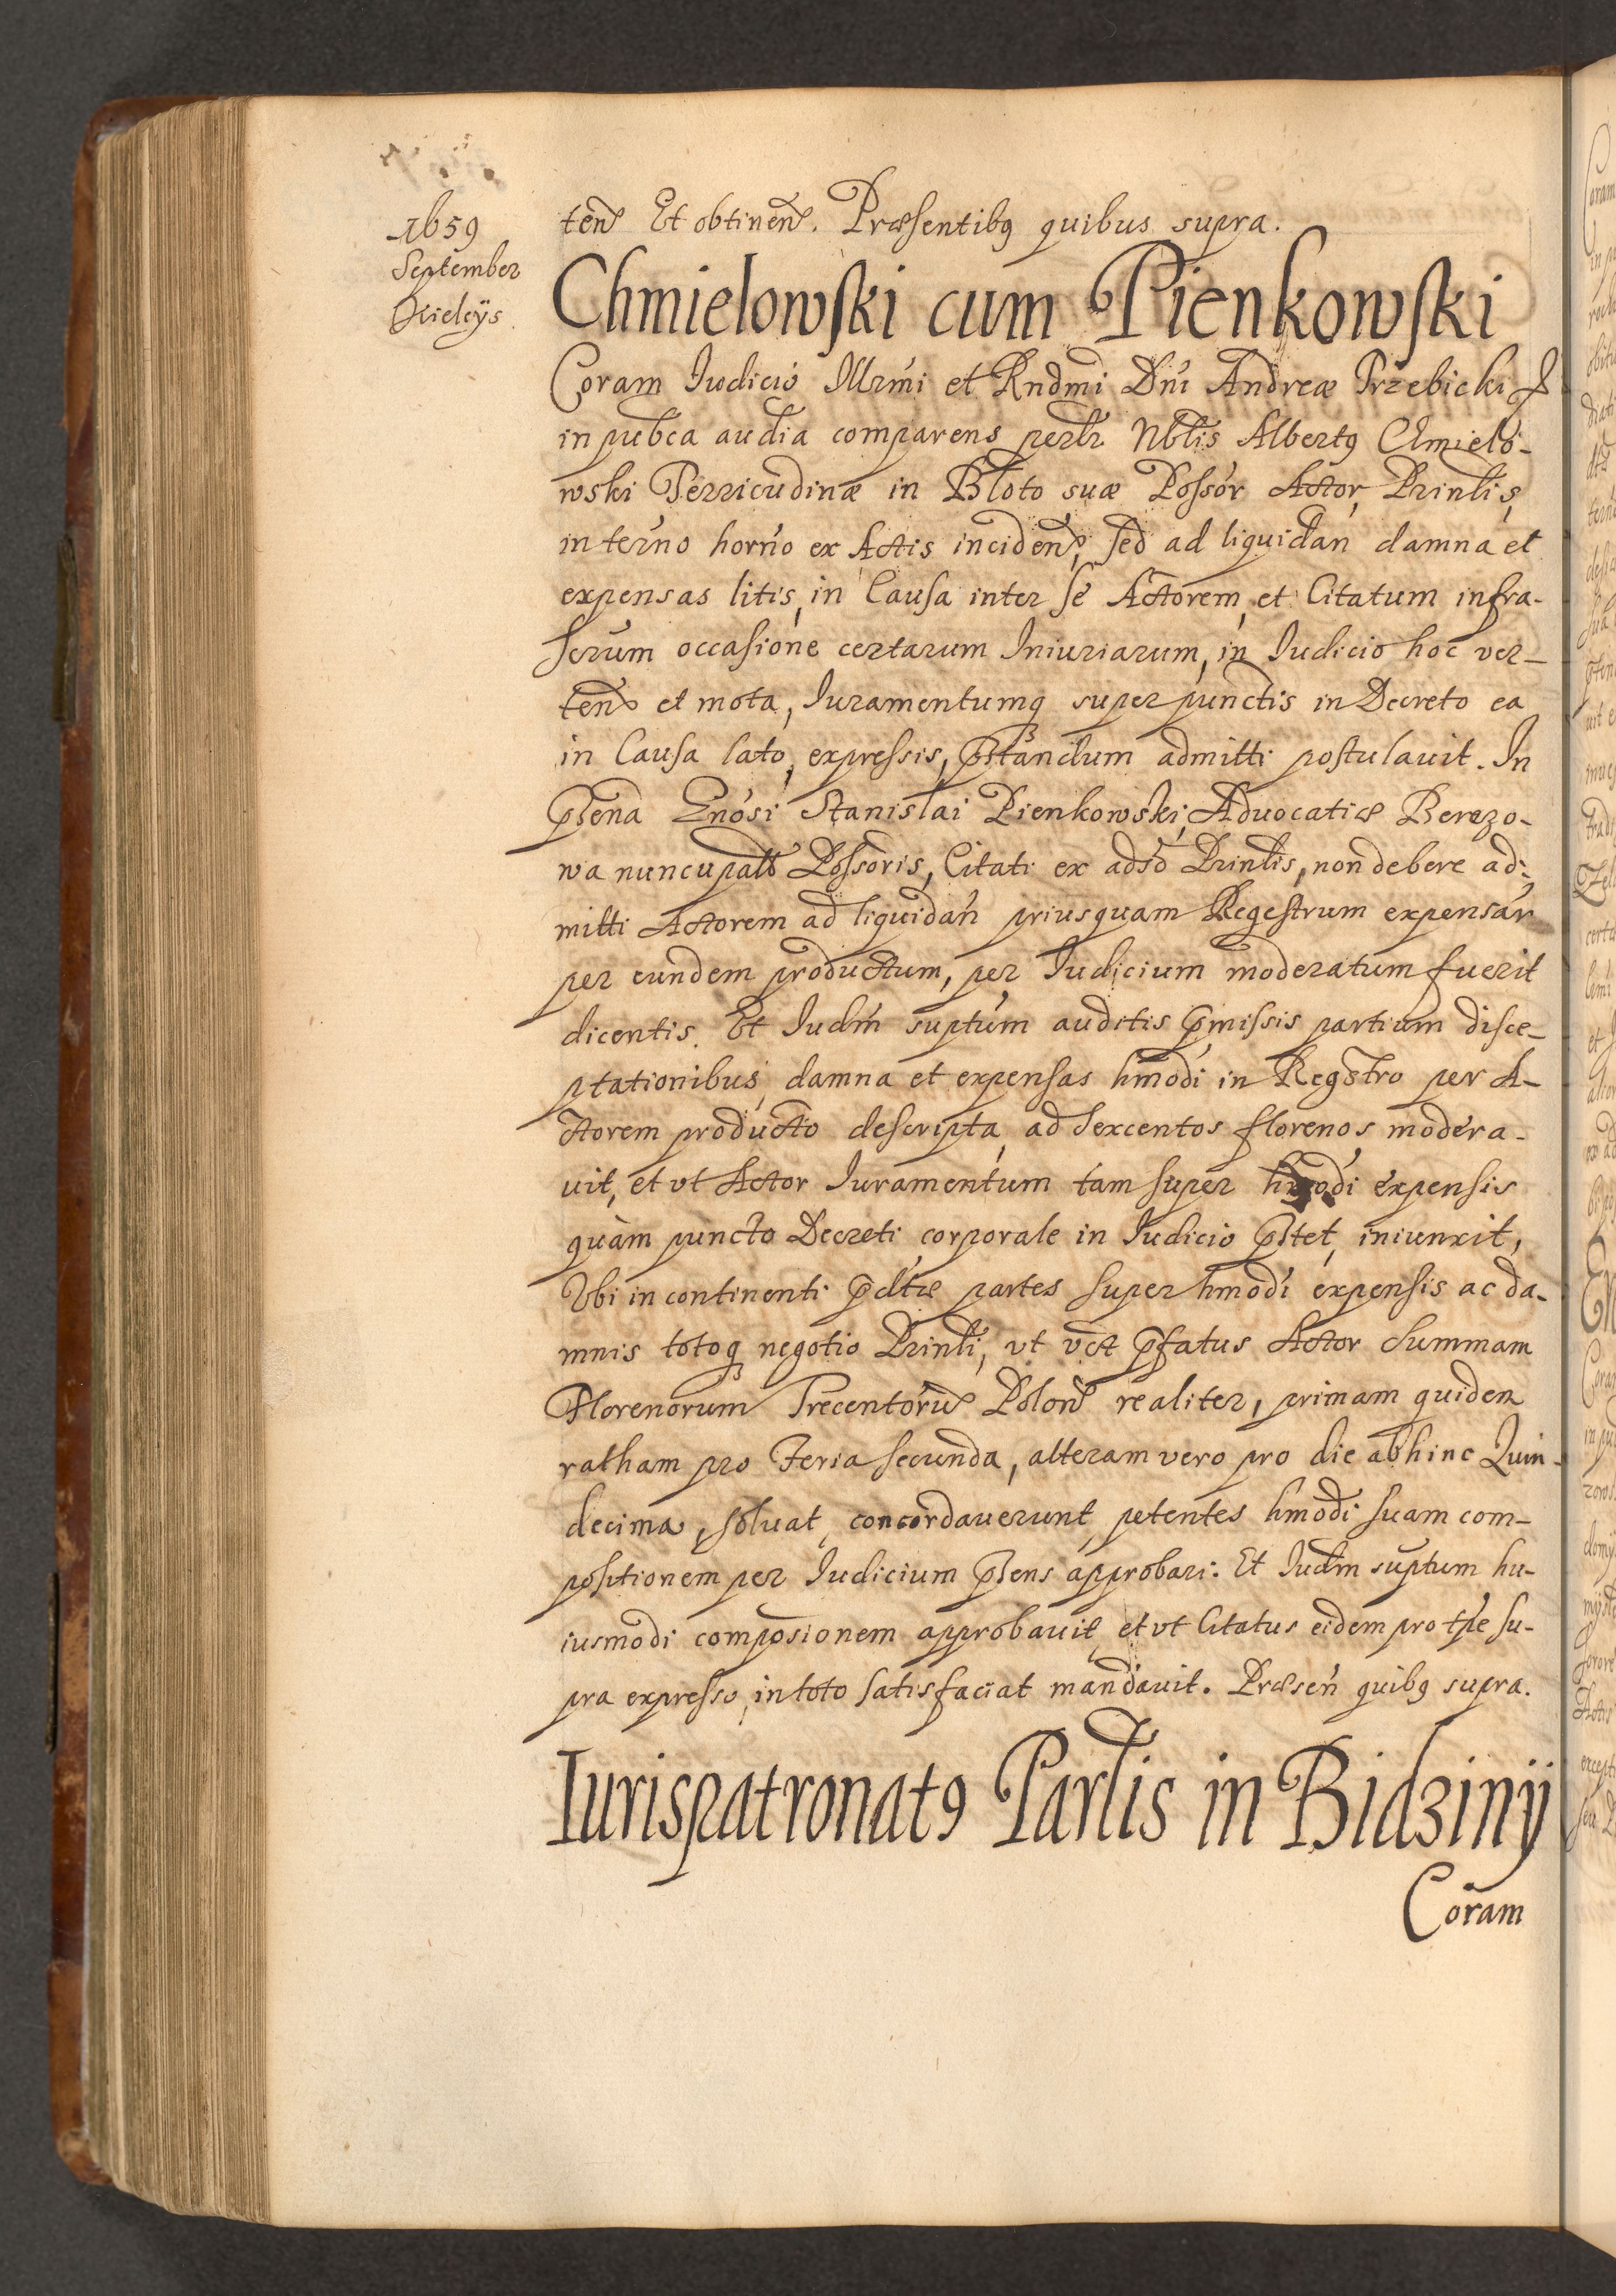 1659
September
Kielcijs
ten. Et obtinen. Præsentibꝰ quibus supra.
Chmielowski cum Pienkowski
Coram Iudicio Illrmi et Rndmi Dni Andreæ Trzebicki
in pubca audia comparens perlr Nblis Albertꝰ Chmielo-
wski in Bloto suæ Possor Actor Prinlis,
in terno horno ex Actis inciden, sed ad liquidan damna et
expensas litis, in Causa inter se Actorem, et Citatum infra-
scrum occasione certarum Iniuriarum, in Iudicio hoc ver-
ten et mota, Iuramentumq super punctis in Decreto ea
in Causa lato, expressis, pstandum admitti postulavit. In
psena Gnosi Stanislai Pienkowski, Advocatiæ Berezo-
wa nuncupat Possoris, Citati ex adso Prinlis, non debere ad-
mitti Actorem ad liquidan priusquam Regestrum expensar
per eundem productum, per Iudicium moderatum fuerit
dicentis. Et Iudm suptum auditis pmissis partium disce-
ptationibus, damna et expensas hmodi in Regstro per A-
ctorem producto descripta, ad sexcentos florenos modera-
uit, et vt Actor Iuramentum tam super hmodi expensis
quàm puncto Decreti corporale in Iudicio pstet, iniunxit,
Vbi in continenti pdtæ partes super hmodi expensis ac da-
mnis totoq negotio Prinli, vt vct pfatus Actor Summam
Florenorum Trecentoru Polon realiter, primam quidem
ratham pro Feria secunda, alteram vero pro die abhinc Quin-
decima, soluat, concordauerunt, petentes hmodi suam com-
positionem per Iudicium psens approbari: Et Iudm suptum hu-
iusmodi composionem approbauit, et vt Citatus eidem pro tpe su-
pra expresso, in toto satisfaciat mandauit. Præsen quibꝰ supra.
Iurispatronatꝰ Parlis in Bidzinij
Coram